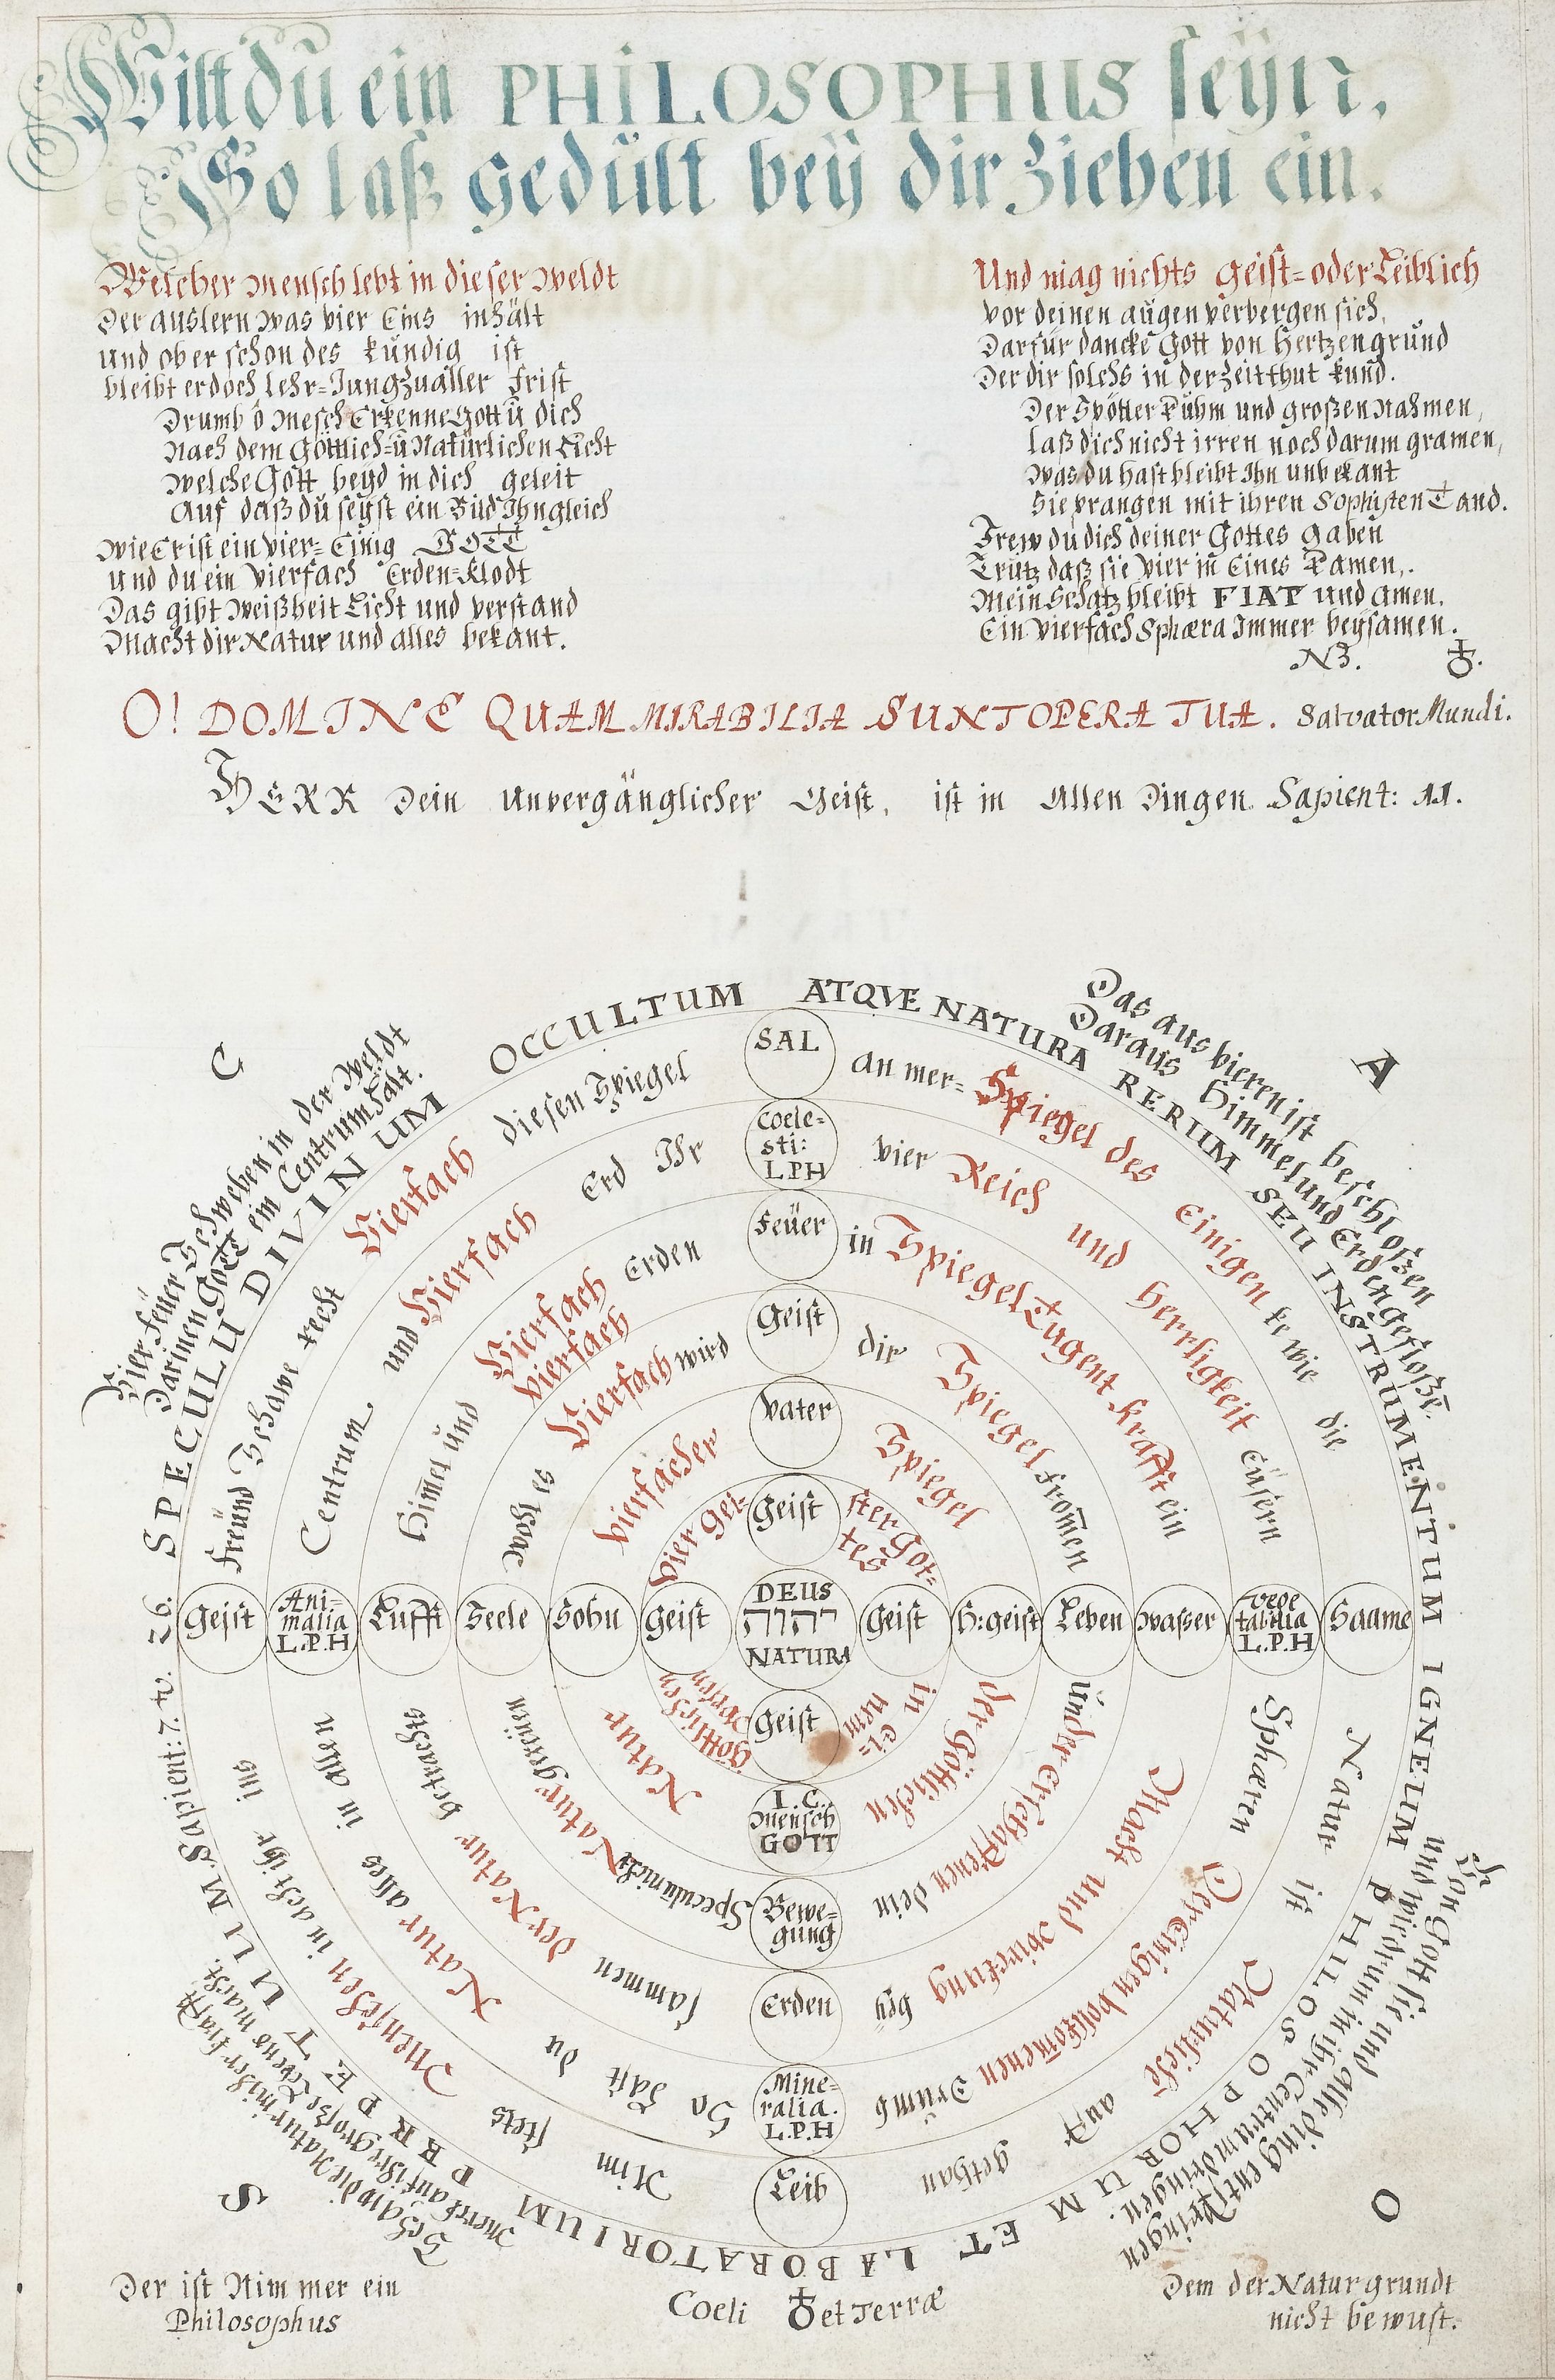 Wiltdu ein PHILOSOPHUS seÿn,
So laß gedult beÿ dir Ziehen ein.
Welcher Mensch lebt in dieser Weldt
Der auslern was vier Eins inhält
und ob er schon des kündig ist
bleibt er doch Lehr=Jung zu aller Frist
Drumb ô Mesch Erkenne Gott ū dich
Nach dem Göttlich=ū Natürlichen Licht
welche Gott beyd in dich geleit
Auf daß du seyst ein Bild Ihn gleich
Wie Er ist ein vier=Einig GOTT
und du ein Vierfach Erden=Klodt
Das gibt Weißheit Licht und verstand
Macht dir Natur und alles bekant.
Und mag nichts Geist=oder Leiblich
vor deinen augen verbergen sich,
Darfür dancke Gott von Hertzengrund
Der dir solchs in der Zeit thut kund.
Der Spötter Ruhm und großen Nahmen,
laß dich nicht irren noch darum gramen,
Was du hast bleibt Ihn unbekant
Sie prangen mit ihren Sophisten Tand.
Frew du dich deiner Gottes gaben
Trutz daß sie Vier in Eines Ramen,.
Mein Schatz bleibt FIAT und Amen,
Ein vierfach Sphæra Immer beysamen.
N3.
O! DOMINE QUAM MIRABILIA SUNT OPERA TUA. Salvator Mundi.
HERR Dein unvergänglicher Geist, ist in Allen Dingen Sapient: 11.
C
A
Vier Feüer Schweben in der Weldt
Darinen GoTT ein Centrum hält.
Das aus vieren ist beschloßen
Daraus Himmel und Erden gefloßē.
SPECULUM DIVINUM OCCULTUM ATQVE NATURA RERUM SEU INSTRUMENTUM IGNEUM PHILOSOPHORUM ET LABORATORIUM PERPETUUM. Sapient: 7. v. 26.
Freünd Schawe recht Vierfach diesen Spiegel
SAL
an mer=
Spiegel des Einigen
ke wie die
Centrum. und Vierfach Erd Ihr
Coele=
sti:
L.P.H
vier Reich und Herrligkeit Eüsern
Himel und Vierfach Erden
Feüer
in Spiegel Tugent krafft ein
Vierfach
so Vierfach wird
Geist
dir Spiegel fromen
Vierfacher
Vater
Spiegel
Vier Gei=
Geist
ster Got=
tes
Geist
Ani=
malia
L.P.H
Lufft
Seele
Sohn
Geist
DEUS
יהוה
NATURA
Geist
H:geist
Leben
Waßer
vege
tabilia
L.P.H
Saame
Göttlichen
Geist
in ei=
nem
Natur
I.C.
Mensch
GOTT
der Göttlichen
Natur getreüen Speculir nicht
Bewe=
gung
under Erschaffenen dein
betrachts der Natur sammen
Erden
Macht und Wirckung
in allen alles Natur du hast So
Mine=
ralia.
L.P.H
Sphæren Der Einigen volkōmenen Drumb
ins in acht ihr Menschen stets Nim
Leib
Natur ist Naturlich auff gethan
Schaw die Natur in ihrer krafft
Merck auf ihre große Lebens macht.
Von Gott sie und alle ding entspringen
und wiedrum in ihr Centrum dringen.
S
O
Der ist Nimmer ein
Philosophus
Coeli et Terræ
Dem der Natur grundt
nicht bewust.